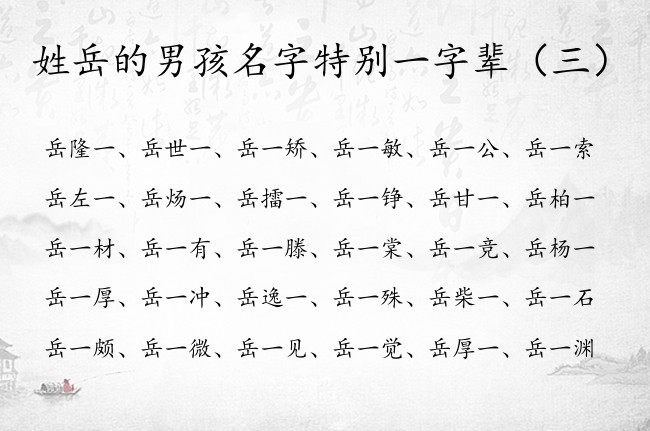 姓岳的男孩名字特别一字辈（三）
岳隆一、岳世一、岳一矫、岳一敏、岳一公、岳一索
岳左一、岳炀一、岳擂一、岳一铮、岳甘一、岳柏一
岳一材、岳一有、岳一滕、岳一棠、岳一竞、岳杨一
岳一厚、岳一冲、岳逸一、岳一殊、岳柴一、岳一石
岳一颇、岳一微、岳一见、岳一觉、岳厚一、岳一渊